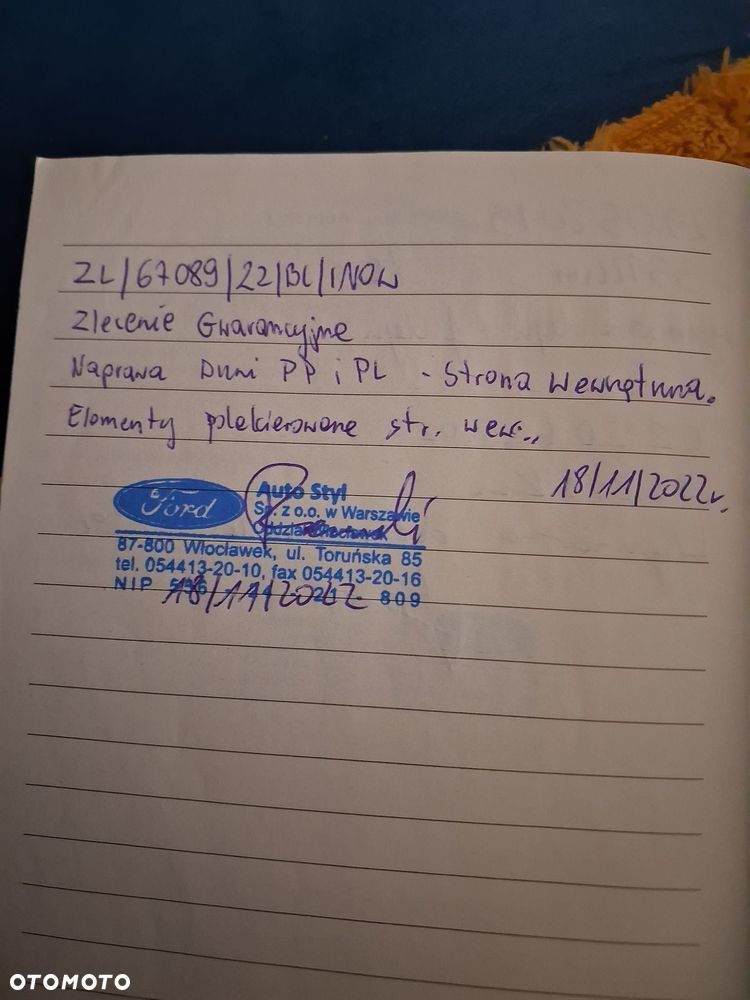 ZL/67089/22/BL/INOW
Zlecenie Gwarancyjne
Naprawa Dwi PP i PL - Strona Wewnętrzna.
Elementy polakierowane str. wew.,
18/11/2022r.
Ford
Auto Styl
Sp. z o.o. w Warszawie
Oddział
87-800 Włocławek, ul. Toruńska 85
tel. 054413-20-10, fax 054413-20-16
NIP 809
18/11/2022
OTOMOTO